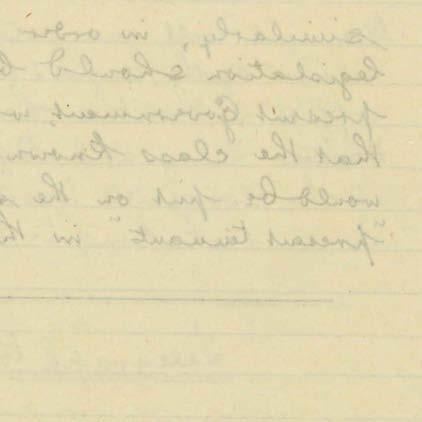 similarly, in order
legislation should b
present Government, w
that the class known
would be put on the s
"present tenant" in th